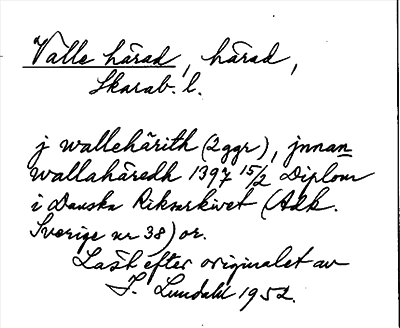 Valle härad, härad,
Skarab. l.
j wallehärith (2 ggr), jnnan
wallahäredh 1397 15/2 Diplom
i Danska Riksarkivet (Adk.
Sverige nr 38) or.
Läst efter originalet av
J. Lundahl 1952.